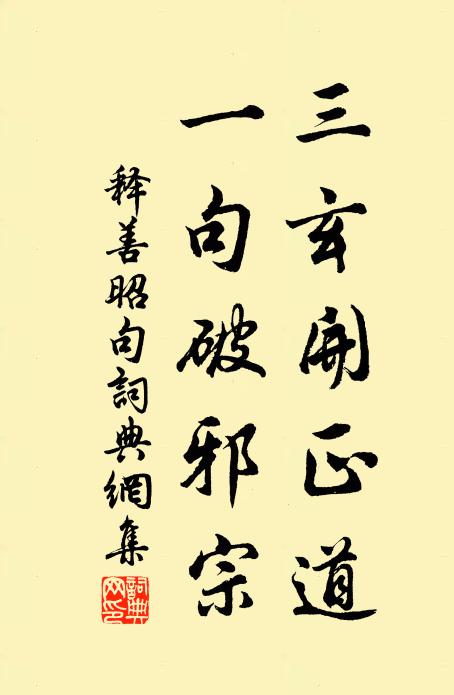 三玄開正道
一句破邪宗
释善昭句詞典網集
詞典网印